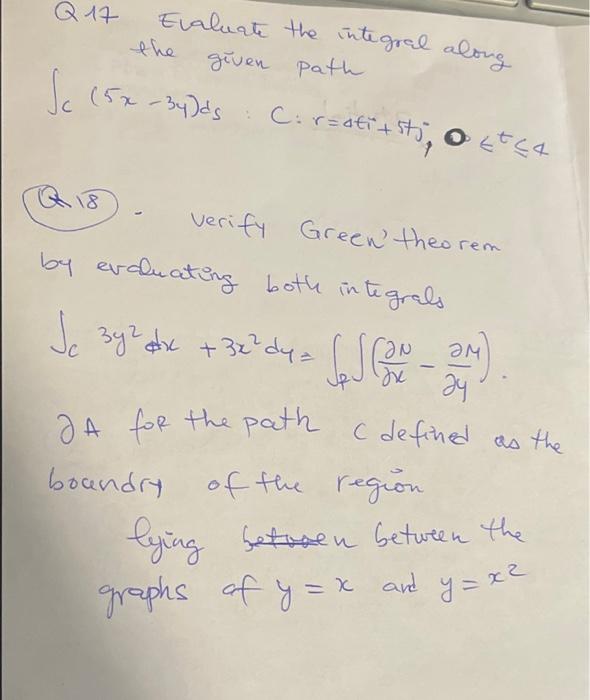 Q 17 Evaluate the integral along
the given path
∫c (5x - 3y)ds : C: r = ti + 5tj, 0 ≤ t ≤ 4
Q 18 - verify Green' theorem
by evaluating both integrals
∫c 3y² dx + 3x² dy = ∫R∫ (∂N/∂x - ∂M/∂y).
∂A for the path c defined as the
boundry of the region
lying between between the
graphs of y = x and y = x²